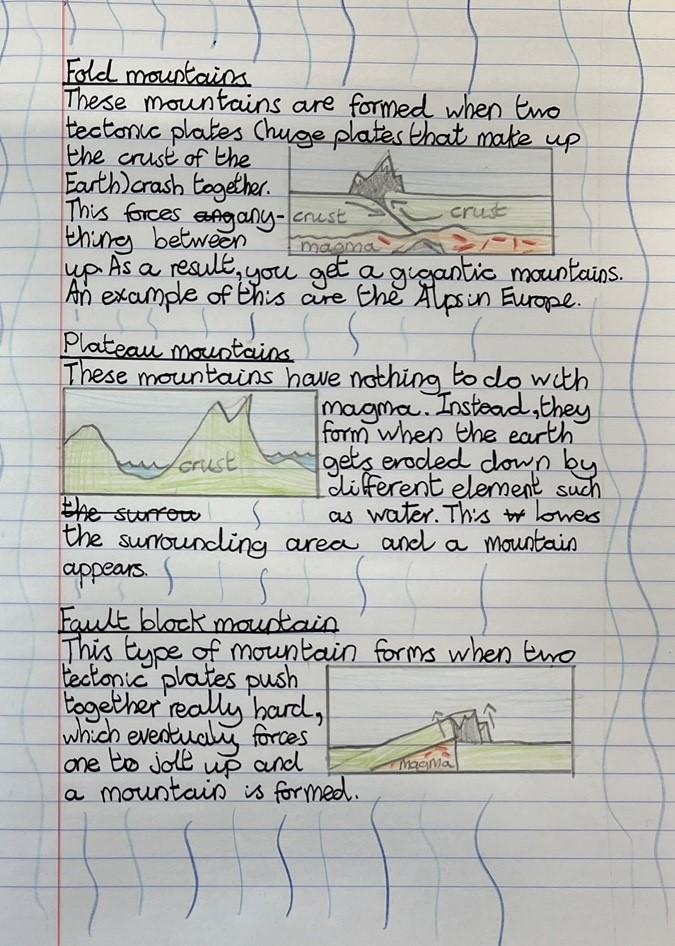 Fold mountains
These mountains are formed when two
tectonic plates (huge plates that make up
the crust of the
Earth) crash together.
This forces ang any-
thing between
crust crust
magma
up. As a result, you get a gigantic mountains.
An example of this are the Alps in Europe.
Plateau mountains
These mountains have nothing to do with
magma. Instead, they
form when the earth
crust
gets eroded down by
different element such
the surrou
as water. This lowers
the surrounding area and a mountain
appears.
Fault block mountain
This type of mountain forms when two
tectonic plates push
together really hard,
which eventually forces
one to jolt up and
magma
a mountain is formed.